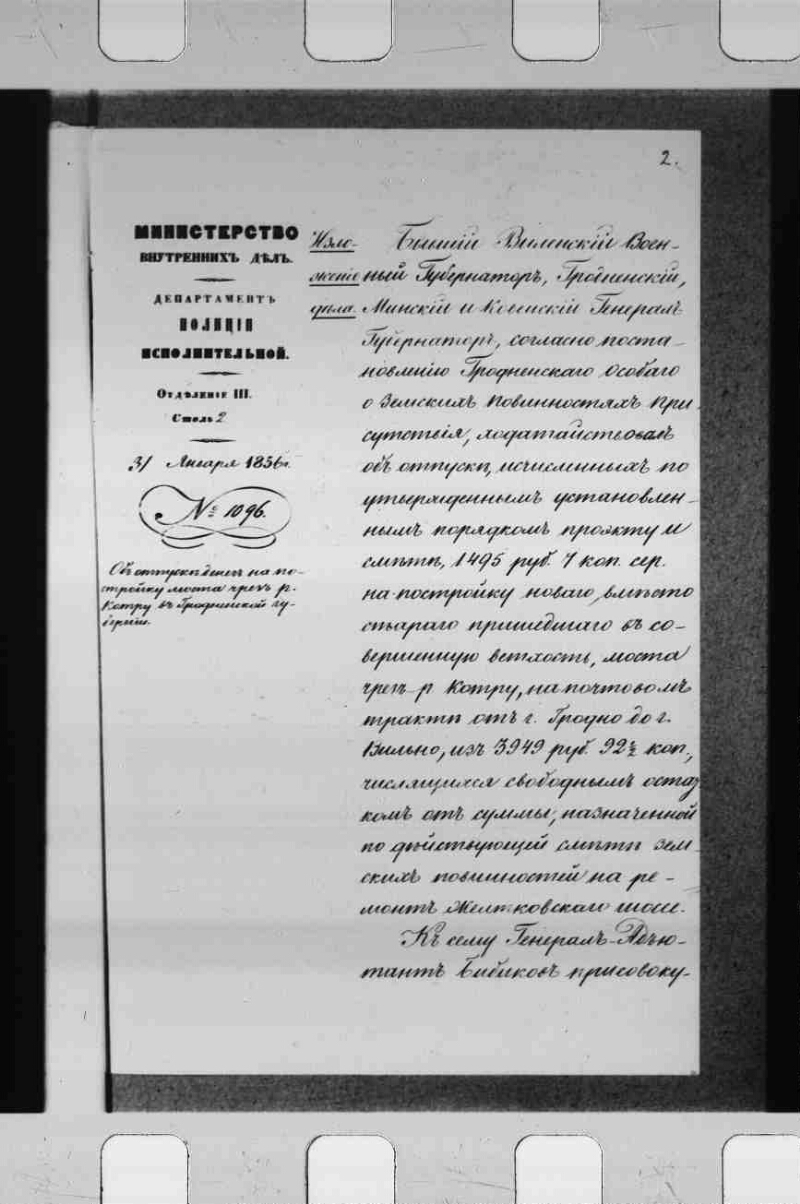 2.
МИНИСТЕРСТВО
ВНУТРЕННИХЪ ДѢЛЪ.
ДЕПАРТАМЕНТЪ
ПОЛИЦІИ
ИСПОЛНИТЕЛЬНОЙ.
Отдѣленіе III.
Столъ 2
31 Января 1856 г.
№ 1096.
Объ отпускѣ денегъ на по-
стройку моста чрезъ р.
Котру въ Гродненской гу-
берніи.
Изло-
женіе
дѣла.
Бывшій Виленскій Воен-
ный Губернаторъ, Гродненскій,
Минскій и Ковенскій Генералъ
Губернаторъ, согласно поста-
новленію Гродненскаго Особаго
о Земскихъ Повинностяхъ При
сутствія, ходатайствовалъ
объ отпускѣ, исчисленныхъ по
утвержденнымъ установлен-
нымъ порядкомъ проэкту и
смѣтѣ, 1495 руб. 7 коп. сер.
на постройку новаго, вмѣсто
стараго пришедшаго въ со-
вершенную ветхость, моста
чрезъ р. Котру, на почтовомъ
трактѣ отъ г. Гродно до г.
Вильно, изъ 3949 руб. 92½ коп.,
числящихся свободнымъ остат
комъ отъ суммы, назначенной
по дѣйствующей смѣтѣ зем
скихъ повинностей на ре-
монтъ Желтковскаго шоссе.
Къ сему Генералъ-Адъю-
тантъ Бибиковъ присовоку-